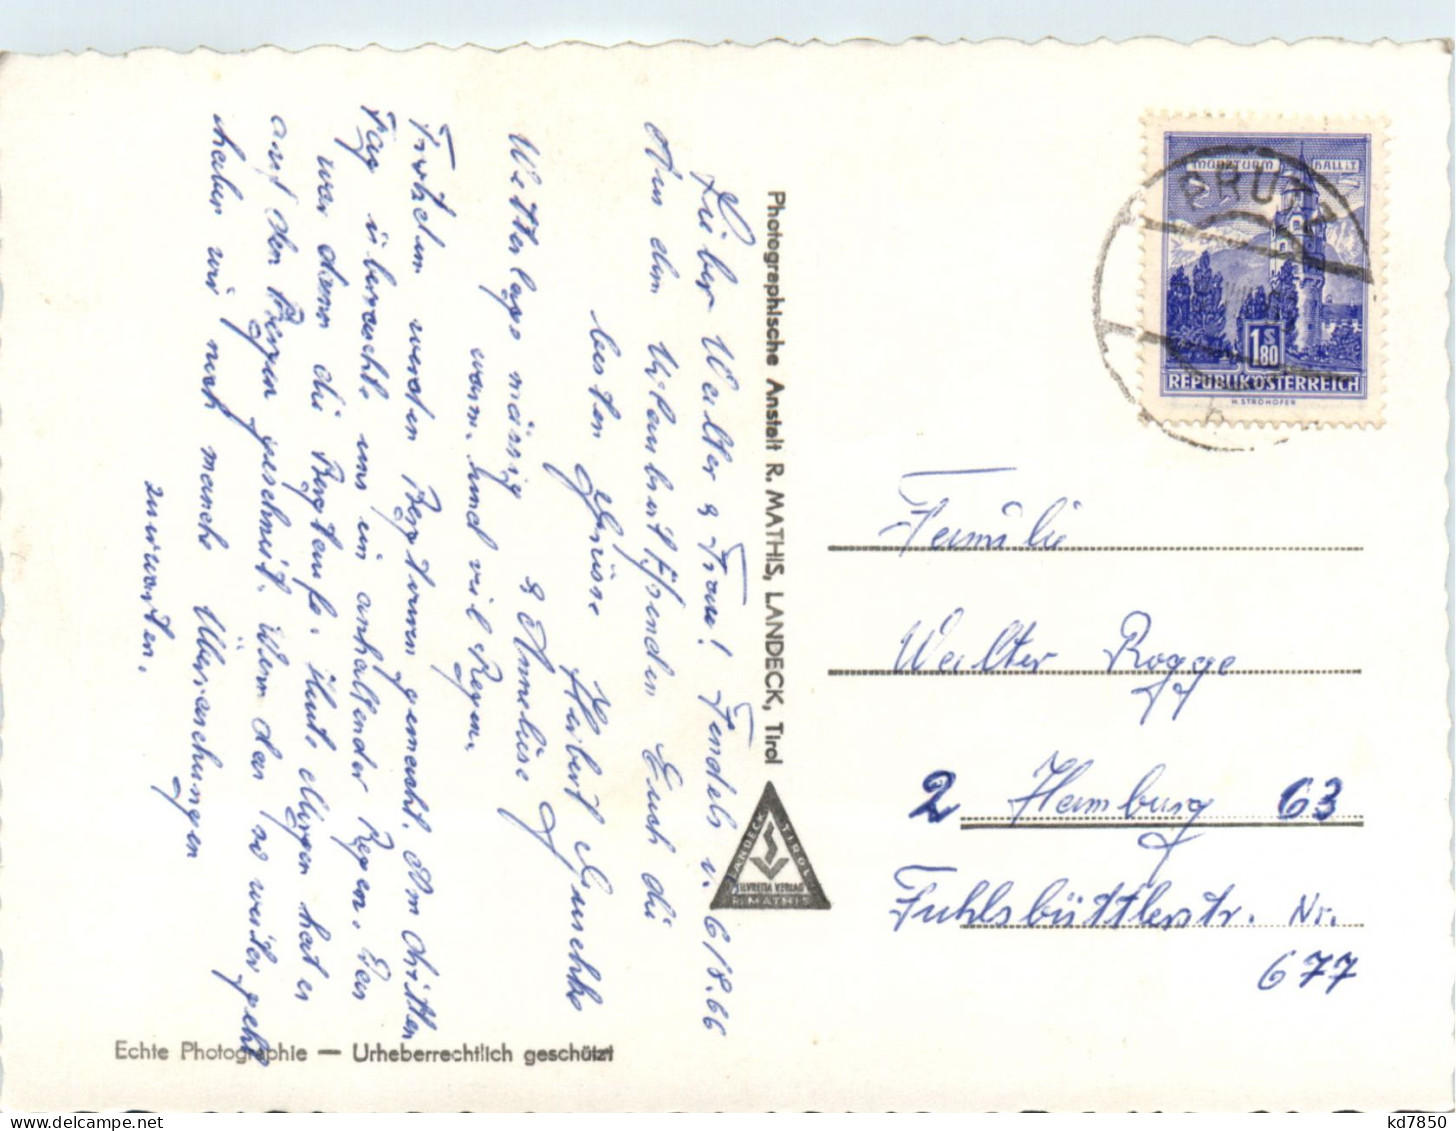 Lieber Walter & Frau! Fendels v. 6/8.66
Aus dem Urlaub Euch die
besten Grüsse Herbert
& Anneliese
Wetterlage mässig
warm. und viel Regen.
Trotzdem werden Bergturen gemacht. Am dritten
Tag überrascht uns ein anhaltender Regen. Das
war dann die Bergtaufe. Heut Morgen hat es
auf den Bergen geschneit. Wenn das so weiter geht
haben wir noch manche Überraschungen
zu erwarten.
Photographische Anstalt R. MATHIS, LANDECK, Tirol
LANDECK TIROL
SILVRETTA VERLAG
R. MATHIS
Echte Photographie — Urheberrechtlich geschützt
MÜNZTURM HALL i.T.
PRUTZ
1 S 80
REPUBLIK ÖSTERREICH
H. STROHOFER
Familie
Walter Rogge
2 Hamburg 63
Fuhlsbüttlerstr. Nr.
677
kd7850